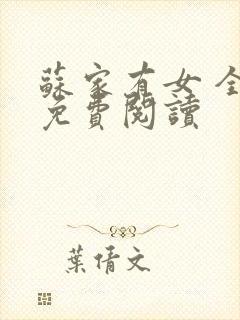 蘇家有女 全
免費閱讀
葉倩文